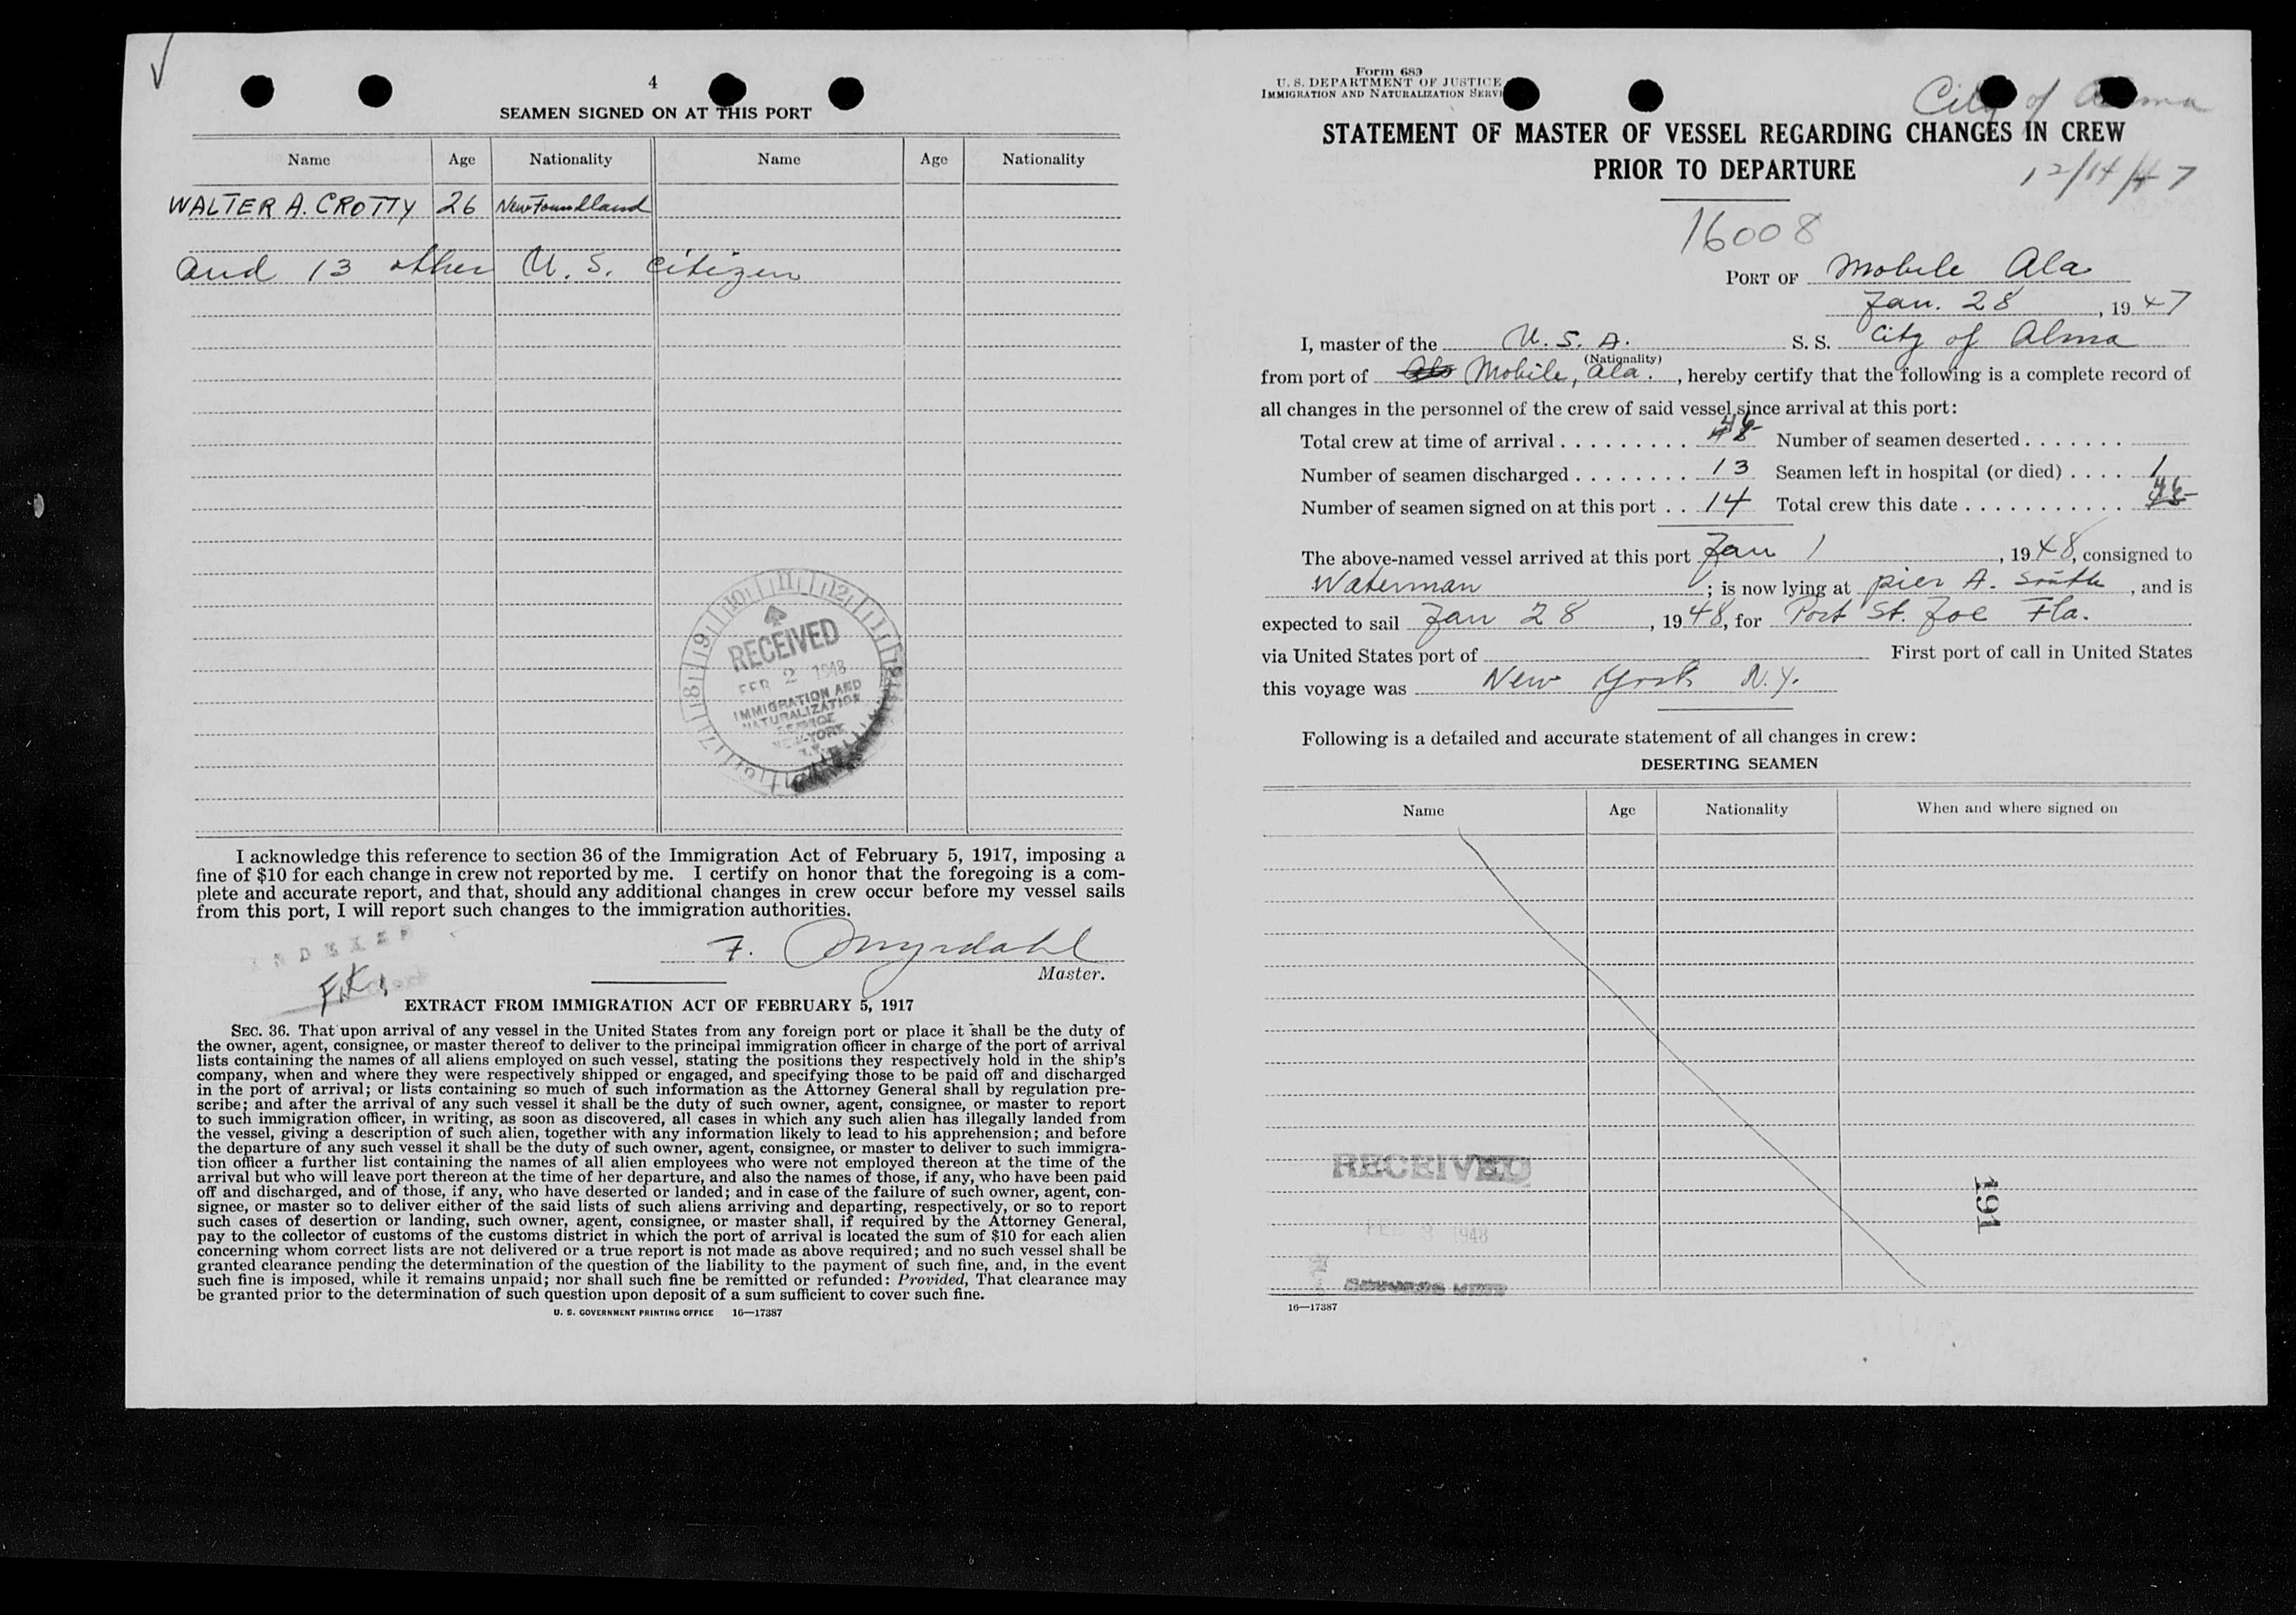 4
SEAMEN SIGNED ON AT THIS PORT
Name Age Nationality Name Age Nationality
WALTER A. CROTTY 26 Newfoundland
and 13 other U. S. citizen
RECEIVED
FEB 2 1948
IMMIGRATION AND
NATURALIZATION
SERVICE
NEW YORK
N.Y.
I acknowledge this reference to section 36 of the Immigration Act of February 5, 1917, imposing a
fine of $10 for each change in crew not reported by me. I certify on honor that the foregoing is a com-
plete and accurate report, and that, should any additional changes in crew occur before my vessel sails
from this port, I will report such changes to the immigration authorities.
INDEXED
F. Myrdahl
Master.
F.K.
EXTRACT FROM IMMIGRATION ACT OF FEBRUARY 5, 1917
SEC. 36. That upon arrival of any vessel in the United States from any foreign port or place it shall be the duty of
the owner, agent, consignee, or master thereof to deliver to the principal immigration officer in charge of the port of arrival
lists containing the names of all aliens employed on such vessel, stating the positions they respectively hold in the ship's
company, when and where they were respectively shipped or engaged, and specifying those to be paid off and discharged
in the port of arrival; or lists containing so much of such information as the Attorney General shall by regulation pre-
scribe; and after the arrival of any such vessel it shall be the duty of such owner, agent, consignee, or master to report
to such immigration officer, in writing, as soon as discovered, all cases in which any such alien has illegally landed from
the vessel, giving a description of such alien, together with any information likely to lead to his apprehension; and before
the departure of any such vessel it shall be the duty of such owner, agent, consignee, or master to deliver to such immigra-
tion officer a further list containing the names of all alien employees who were not employed thereon at the time of the
arrival but who will leave port thereon at the time of her departure, and also the names of those, if any, who have been paid
off and discharged, and of those, if any, who have deserted or landed; and in case of the failure of such owner, agent, con-
signee, or master so to deliver either of the said lists of such aliens arriving and departing, respectively, or so to report
such cases of desertion or landing, such owner, agent, consignee, or master shall, if required by the Attorney General,
pay to the collector of customs of the customs district in which the port of arrival is located the sum of $10 for each alien
concerning whom correct lists are not delivered or a true report is not made as above required; and no such vessel shall be
granted clearance pending the determination of the question of the liability to the payment of such fine, and, in the event
such fine is imposed, while it remains unpaid; nor shall such fine be remitted or refunded: Provided, That clearance may
be granted prior to the determination of such question upon deposit of a sum sufficient to cover such fine.
U. S. GOVERNMENT PRINTING OFFICE 16—17387
Form 689
U. S. DEPARTMENT OF JUSTICE
IMMIGRATION AND NATURALIZATION SERVI
City of Alma
STATEMENT OF MASTER OF VESSEL REGARDING CHANGES IN CREW
PRIOR TO DEPARTURE
12/14/47
16008
PORT OF Mobile Ala
Jan. 28, 1947
I, master of the U. S. A. S. S. City of Alma
(Nationality)
from port of Mobile, Ala., hereby certify that the following is a complete record of
all changes in the personnel of the crew of said vessel since arrival at this port:
Total crew at time of arrival 46 Number of seamen deserted
Number of seamen discharged 13 Seamen left in hospital (or died) 1
Number of seamen signed on at this port 14 Total crew this date 46
The above-named vessel arrived at this port Jan 1, 1948, consigned to
Waterman; is now lying at pier A. South, and is
expected to sail Jan 28, 1948, for Port St. Joe Fla.
via United States port of First port of call in United States
this voyage was New York N.Y.
Following is a detailed and accurate statement of all changes in crew:
DESERTING SEAMEN
Name Age Nationality When and where signed on
RECEIVED
FEB 3 1948
191
16—17387